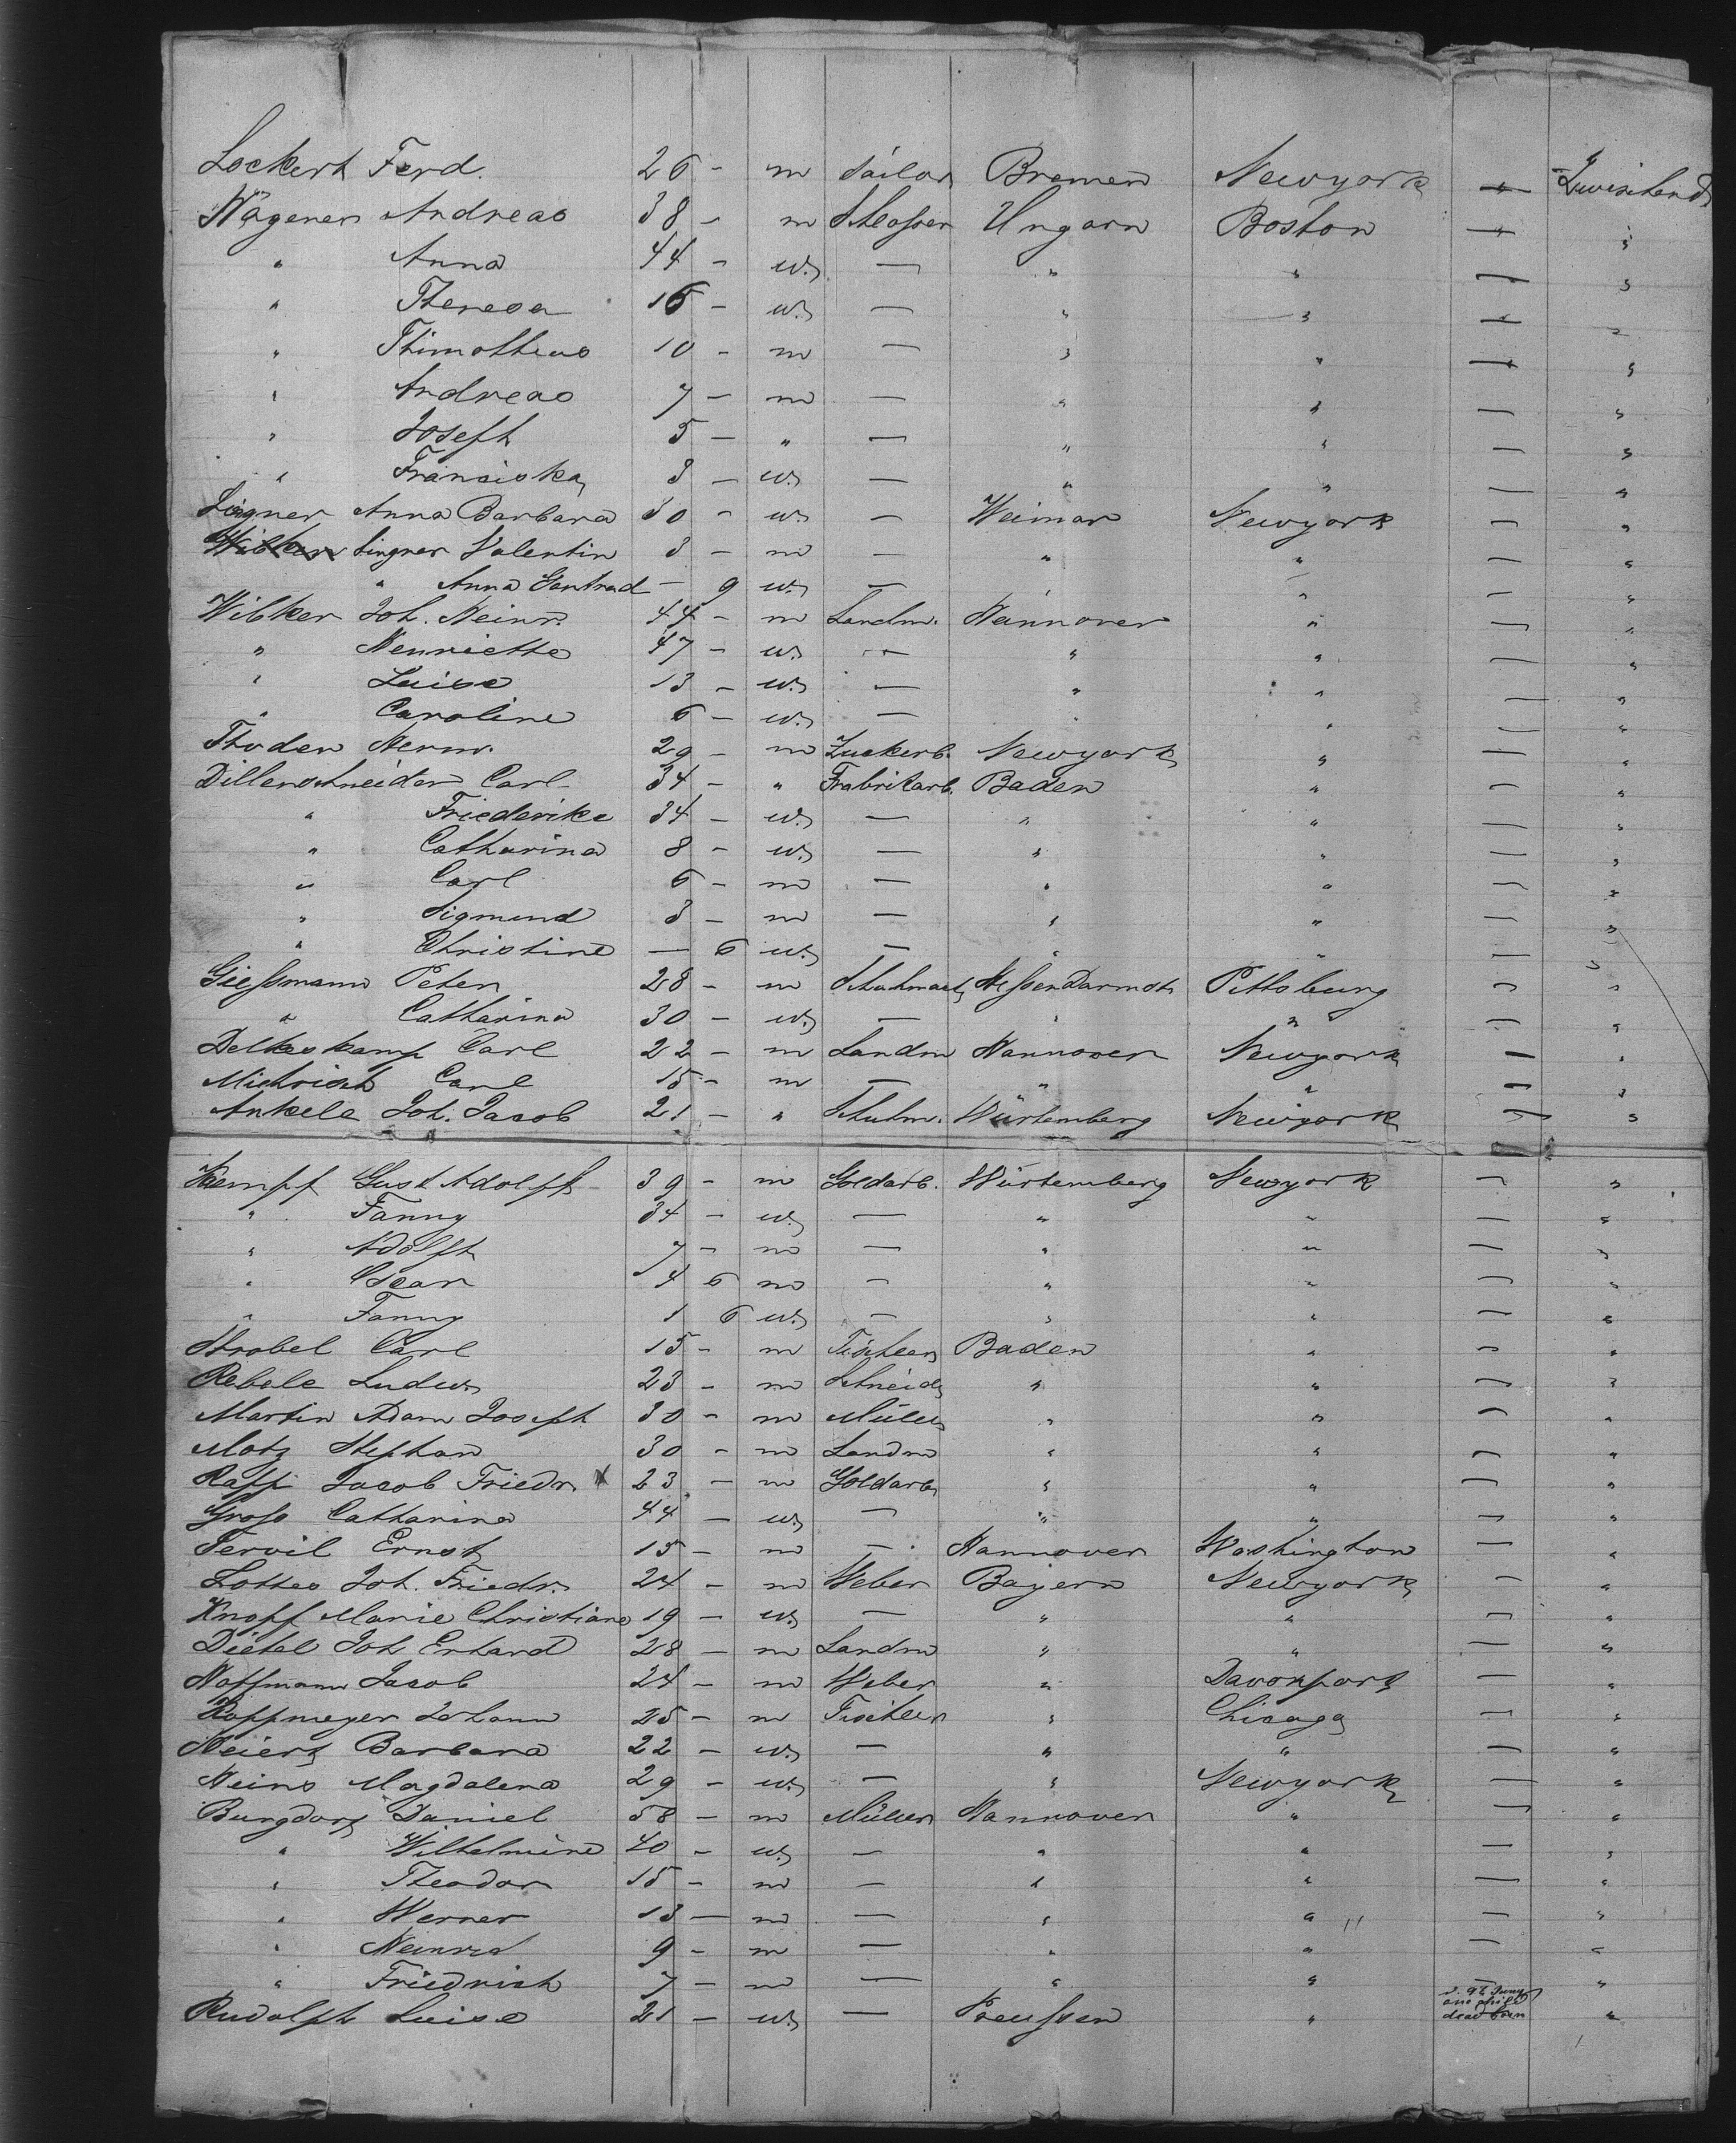 Lockert Ferd. 26 - m Sailor Bremen Newyork — Zwischend
Wägener Andreas 38 - m Schlosser Ungarn Boston — "
" Anna 44 - w. — " " — "
" Theresa 16 - w. — " " — "
" Thimotheus 10 - m — " " — "
" Andreas 7 - m — " " — "
" Joseph 5 - " — " " — "
" Franciska 3 - w. — " " — "
Singner Anna Barbara 30 - w. — Weimar Newyork — "
Singner Valentin 3 - m — " " — "
" Anna Gertrud — 9 w. — " " — "
Wibker Joh. Heinr. 44 - m Landm. Hannover " — "
" Henriette 47 - w. — " " — "
" Luise 13 - w. — " " — "
" Caroline 6 - w. — " " — "
Thoden Herm. 29 - m Zuckerb. Newyork " — "
Dillenschneider Carl 34 - " Frabrikarb. Baden " — "
" Friederike 34 - w. — " " — "
" Catharina 8 - w. — " " — "
" Carl 6 - m — " " — "
" Sigmund 3 - m — " " — "
" Christine — 6 w. — " " — "
Giessmann Peter 28 - m Schuhmach HessenDarmst Pittsburg — "
" Catharina 30 - w. — " " — "
Delkeskamp Carl 22 - m Landm Hannover Newyork — "
Carl 15 - m — " " — "
Ankele Joh. Jacob 21 - " Schuhm. Würtemberg Newyork — "
Kempf Gust Adolph 39 - m Goldarb. Würtemberg Newyork — "
" Fanny 34 - w. — " " — "
" Adolph 7 - m — " " — "
" Oscar 4 6 m — " " — "
" Fanny 1 6 w. — " " — "
Strobel Carl 15 - m Tischler Baden " — "
Rebele Ludw. 23 - m Schneid " " — "
Martin Adam Joseph 30 - m Müller " " — "
Motz Stephan 30 - m Landm " " — "
Raff Jacob Friedr. X 23 - m Goldarb " " — "
Gross Catharina 44 - w. — " " — "
Ernst 15 - m — Hannover Washington — "
Lottes Joh. Friedr. 24 - m Weber Bayern Newyork — "
Knopf Marie Christiane 19 - w. — " " — "
Dietel Joh Erhard 28 - m Landm " " — "
Hoffmann Jacob 24 - m Weber " Davonport — "
Johann 25 - m Tischler " Chicago — "
Barbara 22 - w. — " " — "
Heins Magdalena 29 - w. — " Newyork — "
Burgdorf Daniel 58 - m Müller Hannover " — "
" Wilhelmine 40 - w. — " " — "
" Theodor 15 - m — " " — "
" Werner 13 - m — " " — "
" Heinrch 9 - m — " " — "
" Friedrich 7 - m — " " — "
Rudolph Luise 21 - w. — Preussen " one child dead born "